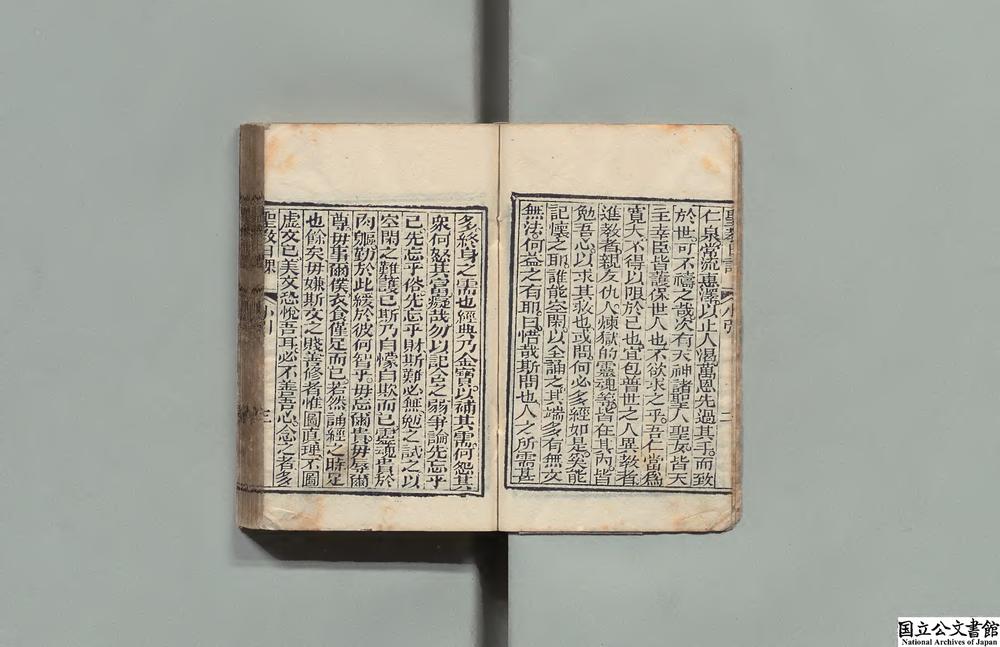 聖教日課 小引 二
仁泉常流惠澤以止人渴萬恩先過其手而致
於世可不禱之哉次有天神諸聖人聖女皆天
主幸臣皆護保世人也不欲求之乎吾仁當爲
寛大不得以限於己也宜包普世之人異教者
進教者親友仇人煉獄的靈魂等皆在其內皆
勉吾心以求其救也或問何必多經如是矣能
記懷之耶誰能空閑以全誦之其端多有無文
無法何益之有耶曰惜哉斯問也人之所需甚
多終身之需也經典乃金寶以補其需何怨其
衆何怒其富癡哉勿以記含之弱爭論先忘乎
己先忘乎俗先忘乎財斯難必無勉之試之以
空閑之難護己斯乃自懞自欺而已靈魂貴於
肉軀勤於此緩於彼何智乎毋忘爾貴毋辱爾
尊毋事爾僕衣食僅足而已若然誦經之時足
也餘矣毋嫌斯文之賤善修者惟圖直理不圖
虛文已美文恐悅吾耳必不善吾心念之者多
聖教日課 小引 三
国立公文書館
National Archives of Japan